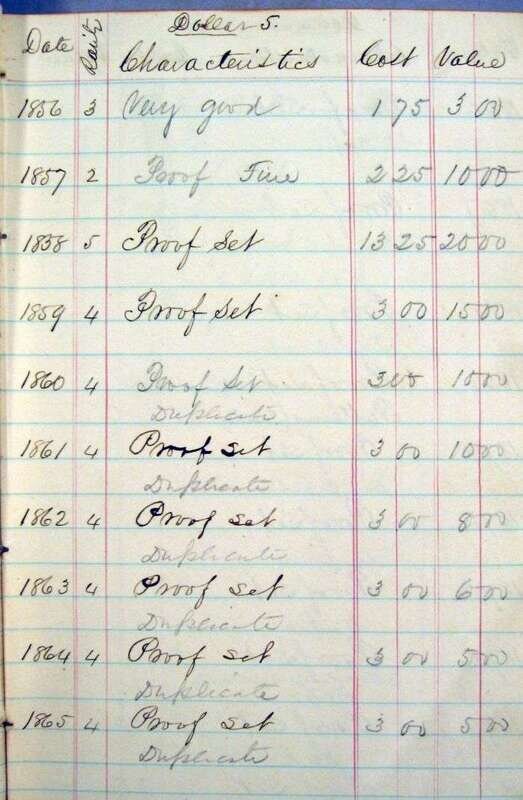 Dollars.
Date Rarity Characteristics Cost Value
1856 3 Very good 1 75 3 00
1857 2 Proof Fine 2 25 10 00
1858 5 Proof Set 13 25 20 00
1859 4 Proof Set 3 00 15 00
1860 4 Proof Set 3 00 10 00
Duplicate
1861 4 Proof set 3 00 10 00
Duplicate
1862 4 Proof set 3 00 8 00
Duplicate
1863 4 Proof set 3 00 6 00
Duplicate
1864 4 Proof set 3 00 5 00
Duplicate
1865 4 Proof set 3 00 5 00
Duplicate